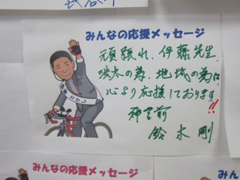 みんなの応援メッセージ
頑張れ、伊藤先生
の為、地域の為に
心より応援しております!!
鈴木剛
みんなの応援メッセージ